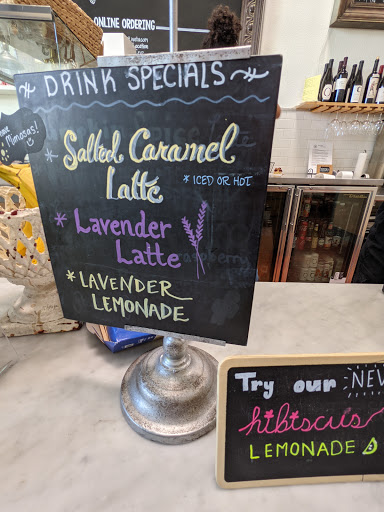 ONLINE ORDERING
DRINK SPECIALS
Salted Caramel
Latte
* ICED OR HOT
* Lavender
Latte
* LAVENDER
LEMONADE
Mimosas!
Try our NEW
hibiscus
LEMONADE